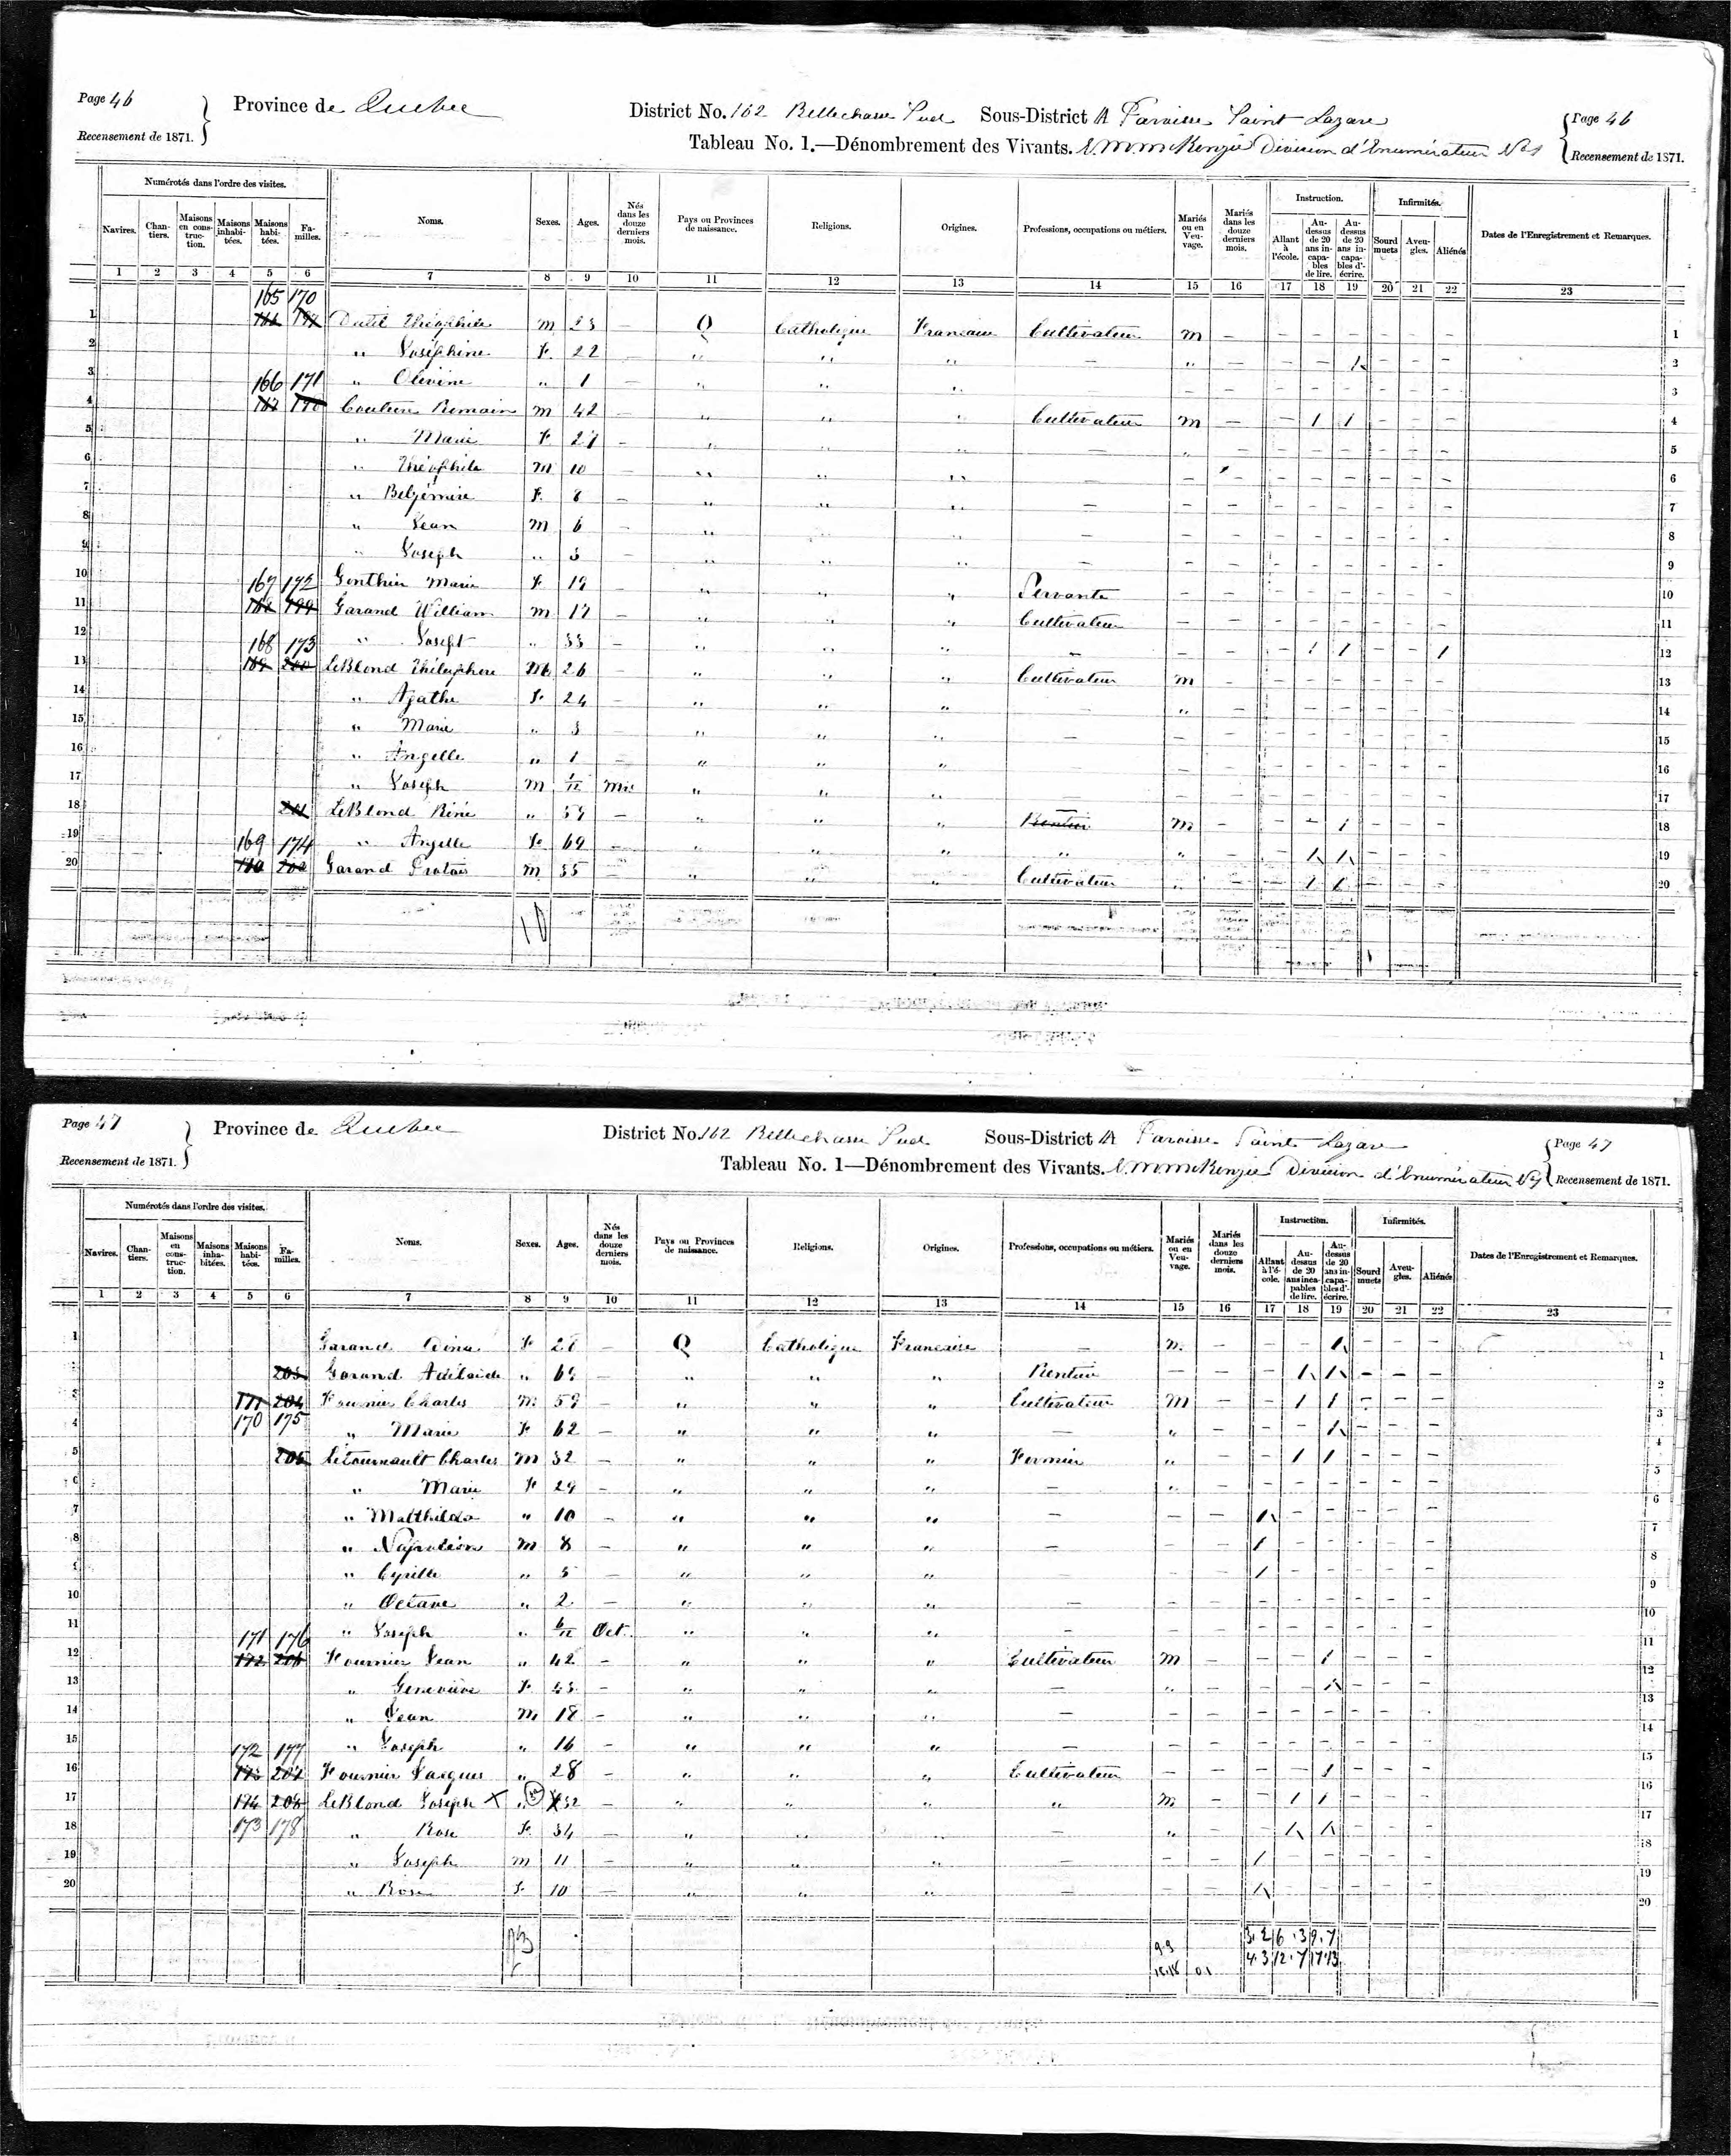 Page 46
Province de Quebec
District No. 162 Bellechasse Sud Sous-District A Paroisse Saint Lazare
Page 46
Recensement de 1871.
Tableau No. 1.—Dénombrement des Vivants. McKenzie Division d'Enumérateur No 1
Recensement de 1871.
Numérotés dans l'ordre des visites.
Navires. Chantiers. Maisons en construction. Maisons inhabitées. Maisons habitées. Familles. Noms. Sexes. Ages. Nés dans les douze derniers mois. Pays ou Provinces de naissance. Religions. Origines. Professions, occupations ou métiers. Mariés ou en Veuvage. Mariés dans les douze derniers mois. Instruction. Allant à l'école. Au-dessus de 20 ans incapables de lire. Au-dessus de 20 ans incapables d'écrire. Infirmités. Sourd muets Aveugles. Aliénés Dates de l'Enregistrement et Remarques.
1 2 3 4 5 6 7 8 9 10 11 12 13 14 15 16 17 18 19 20 21 22 23
165 170
1 Théophile M 23 — Q Catholique Francaise Cultivateur M — — — — — — — 1
2 " Joséphine F. 22 — " " " — " — — — 1 — — — 2
3 166 171 " Olivine " 1 — " " " — — — — — — — — — 3
4 Couture Romain M 42 — " " " Cultivateur M — — 1 1 — — — 4
5 " Marie F. 27 — " " " — " — — — — — — — 5
6 " Théophile M 10 — " " " — — — — — — — — 6
7 " F. 8 — " " " — — — — — — — — — 7
8 " Jean M 6 — " " " — — — — — — — — — 8
9 " Joseph " 3 — " " " — — — — — — — — — 9
10 167 172 Gonthier Marie F. 19 — " " " Servante — — — — — — — — 10
11 Garand William M 17 — " " " Cultivateur — — — — — — — — 11
12 168 173 " Josept " 33 — " " " — — — — 1 1 — — 1 12
13 LeBlond Thélesphore M 26 — " " " Cultivateur M — — — — — — — 13
14 " Agathe F. 24 — " " " — " — — — — — — — 14
15 " Marie " 3 — " " " — — — — — — — — — 15
16 " Angelle " 1 — " " " — — — — — — — — — 16
17 " Joseph M 1/12 " " " — — — — — — — — 17
18 LeBlond Réné " 59 — " " " Rentier M — — — 1 — — — 18
19 169 174 " Angelle F. 69 — " " " " " — — 1 1 — — — 19
20 Garand Protais M 35 — " " " Cultivateur " — — 1 1 — — — 20
Page 47
Province de Quebec
District No. 162 Bellechasse Sud Sous-District A Paroisse Saint Lazare
Page 47
Recensement de 1871.
Tableau No. 1—Dénombrement des Vivants. McKenzie Division d'Enumérateur No 1
Recensement de 1871.
Numérotés dans l'ordre des visites.
Navires. Chantiers. Maisons en construction. Maisons inhabitées. Maisons habitées. Familles. Noms. Sexes. Ages. Nés dans les douze derniers mois. Pays ou Provinces de naissance. Religions. Origines. Professions, occupations ou métiers. Mariés ou en Veuvage. Mariés dans les douze derniers mois. Instruction. Allant à l'école. Au-dessus de 20 ans incapables de lire. Au-dessus de 20 ans incapables d'écrire. Infirmités. Sourd muets Aveugles. Aliénés Dates de l'Enregistrement et Remarques.
1 2 3 4 5 6 7 8 9 10 11 12 13 14 15 16 17 18 19 20 21 22 23
1 Garand Dina F. 28 — Q Catholique Francaise — M. — — — 1 — — — 1
2 203 Garand Adélaide " 69 — " " " Rentier — — — 1 1 — — — 2
3 171 204 Fournier Charles M. 59 — " " " Cultivateur M — — 1 1 — — — 3
4 170 175 " Marie F. 62 — " " " — " — — — 1 — — — 4
5 205 Létournault Charles M 32 — " " " Fermier " — — 1 1 — — — 5
6 " Marie F. 29 — " " " — " — — — — — — — 6
7 " Matthilda " 10 — " " " — — — 1 — — — — — 7
8 " Napoléon M 8 — " " " — — — 1 — — — — — 8
9 " Cyrille " 5 — " " " — — — 1 — — — — — 9
10 " Octave " 2 — " " " — — — — — — — — — 10
11 171 176 " Joseph " 6/12 Oct. " " " — — — — — — — — — 11
12 172 206 Fournier Jean " 42 — " " " Cultivateur M — — — 1 — — — 12
13 " Geneviève F. 43 — " " " — " — — — 1 — — — 13
14 " Jean M 18 — " " " — — — — — — — — — 14
15 172 177 " Joseph " 16 — " " " — — — — — — — — — 15
16 173 207 Fournier Jacques " 28 — " " " Cultivateur — — — — 1 — — — 16
17 174 208 LeBlond Joseph X " 32 — " " " " M — — 1 1 — — — 17
18 173 178 " Rose F. 34 — " " " — " — — 1 1 — — — 18
19 " Joseph M 11 — " " " — — — 1 — — — — — 19
20 " Rose F. 10 — " " " — — — 1 — — — — — 20
9.9 3.2 6.3 9.7
4.3 12.7 17.13
18.18 0.1